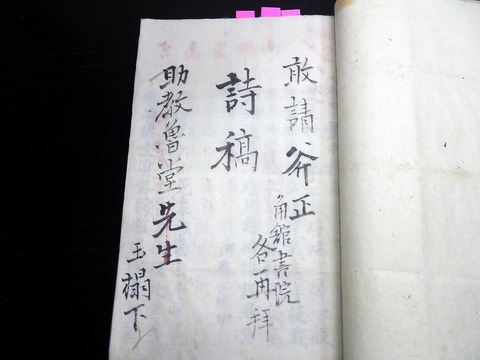 敢請斧正
角館書院
各再拜
詩稿
助教魯堂先生
玉榻下